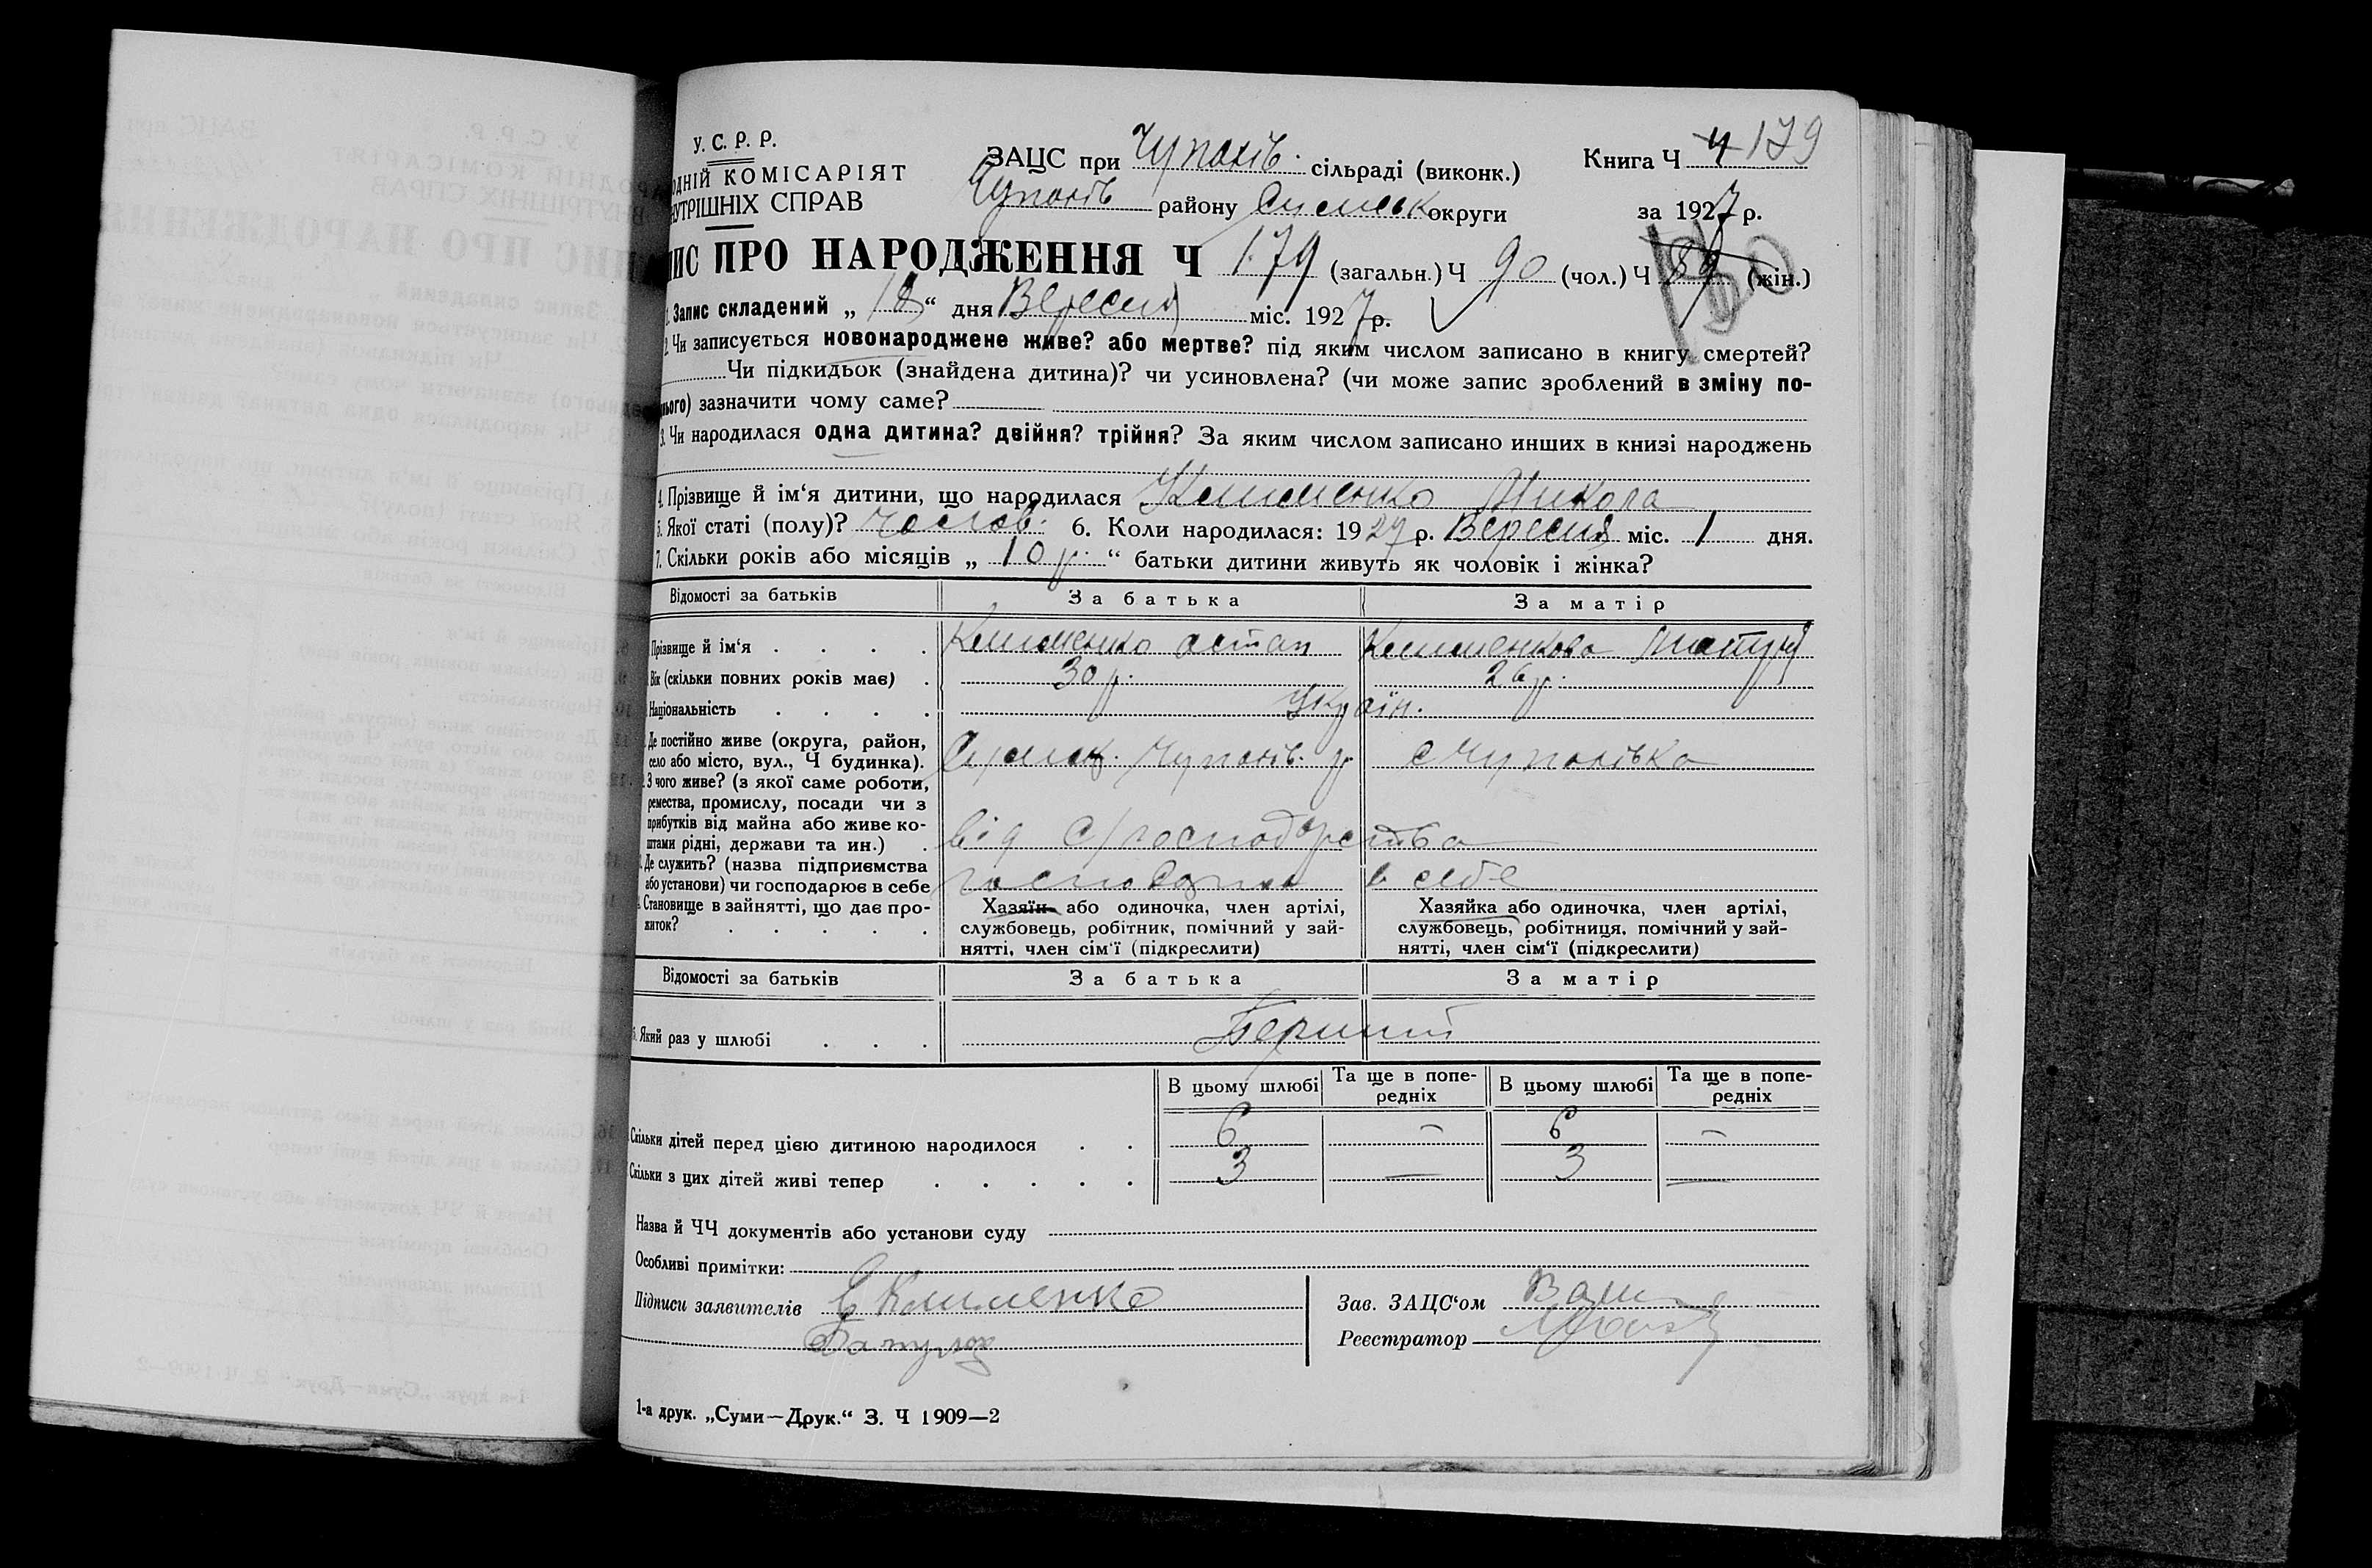 У. С. Р. Р.
ОДНІЙ КОМІСАРІЯТ
НУТРІШНІХ СПРАВ
ЗАЦС при Чупахів. сільраді (виконк.)
Книга Ч 4 179
Чупахів району Сумськ округи
за 1927 р.
ПИС ПРО НАРОДЖЕННЯ Ч 179 (загальн.) Ч 90 (чол.) Ч 89 (жін.)
1. Запис складений „ “ дня Вересня міс. 1927 р.
2. Чи записується новонароджене живе? або мертве? під яким числом записано в книгу смертей?
Чи підкидьок (знайдена дитина)? чи усиновлена? (чи може запис зроблений в зміну по-
нього) зазначити чому саме?
3. Чи народилася одна дитина? двійня? трійня? За яким числом записано инших в книзі народжень
4. Прізвище й ім‘я дитини, що народилася Клименко Микола
5. Якої статі (полу)? чолов. 6. Коли народилася: 1927 р. Вересня міс. 1 дня.
7. Скільки років або місяців „ 10 р. “ батьки дитини живуть як чоловік і жінка?
Відомості за батьків За батька За матір
Прізвище й ім‘я Клименко Остап Клименкова
Вік (скільки повних років має) 30 р. 26 р.
Національність Україн.
Де постійно живе (округа, район,
село або місто, вул., Ч будинка). Сумськ. Чупахів. р. с Чупахівка
З чого живе? (з якої саме роботи,
ремества, промислу, посади чи з
прибутків від майна або живе ко-
штами рідні, держави та ин.) від с/господарства
Де служить? (назва підприємства
або установи) чи господарює в себе в себе
Становище в зайнятті, що дає про-
житок?
Хазяїн або одиночка, член артілі,
службовець, робітник, помічний у зай-
нятті, член сім‘ї (підкреслити)
Хазяйка або одиночка, член артілі,
службовець, робітниця, помічний у зай-
нятті, член сім‘ї (підкреслити)
Відомості за батьків За батька За матір
Який раз у шлюбі Перший
В цьому шлюбі Та ще в попе-
редніх В цьому шлюбі Та ще в попе-
редніх
Скільки дітей перед цією дитиною народилося 6 — 6 —
Скільки з цих дітей живі тепер 3 — 3 —
Назва й ЧЧ документів або установи суду
Особливі примітки:
Підписи заявителів Клименко
Зав. ЗАЦС‘ом
Реєстратор
1-а друк. „Суми—Друк.“ З. Ч 1909—2